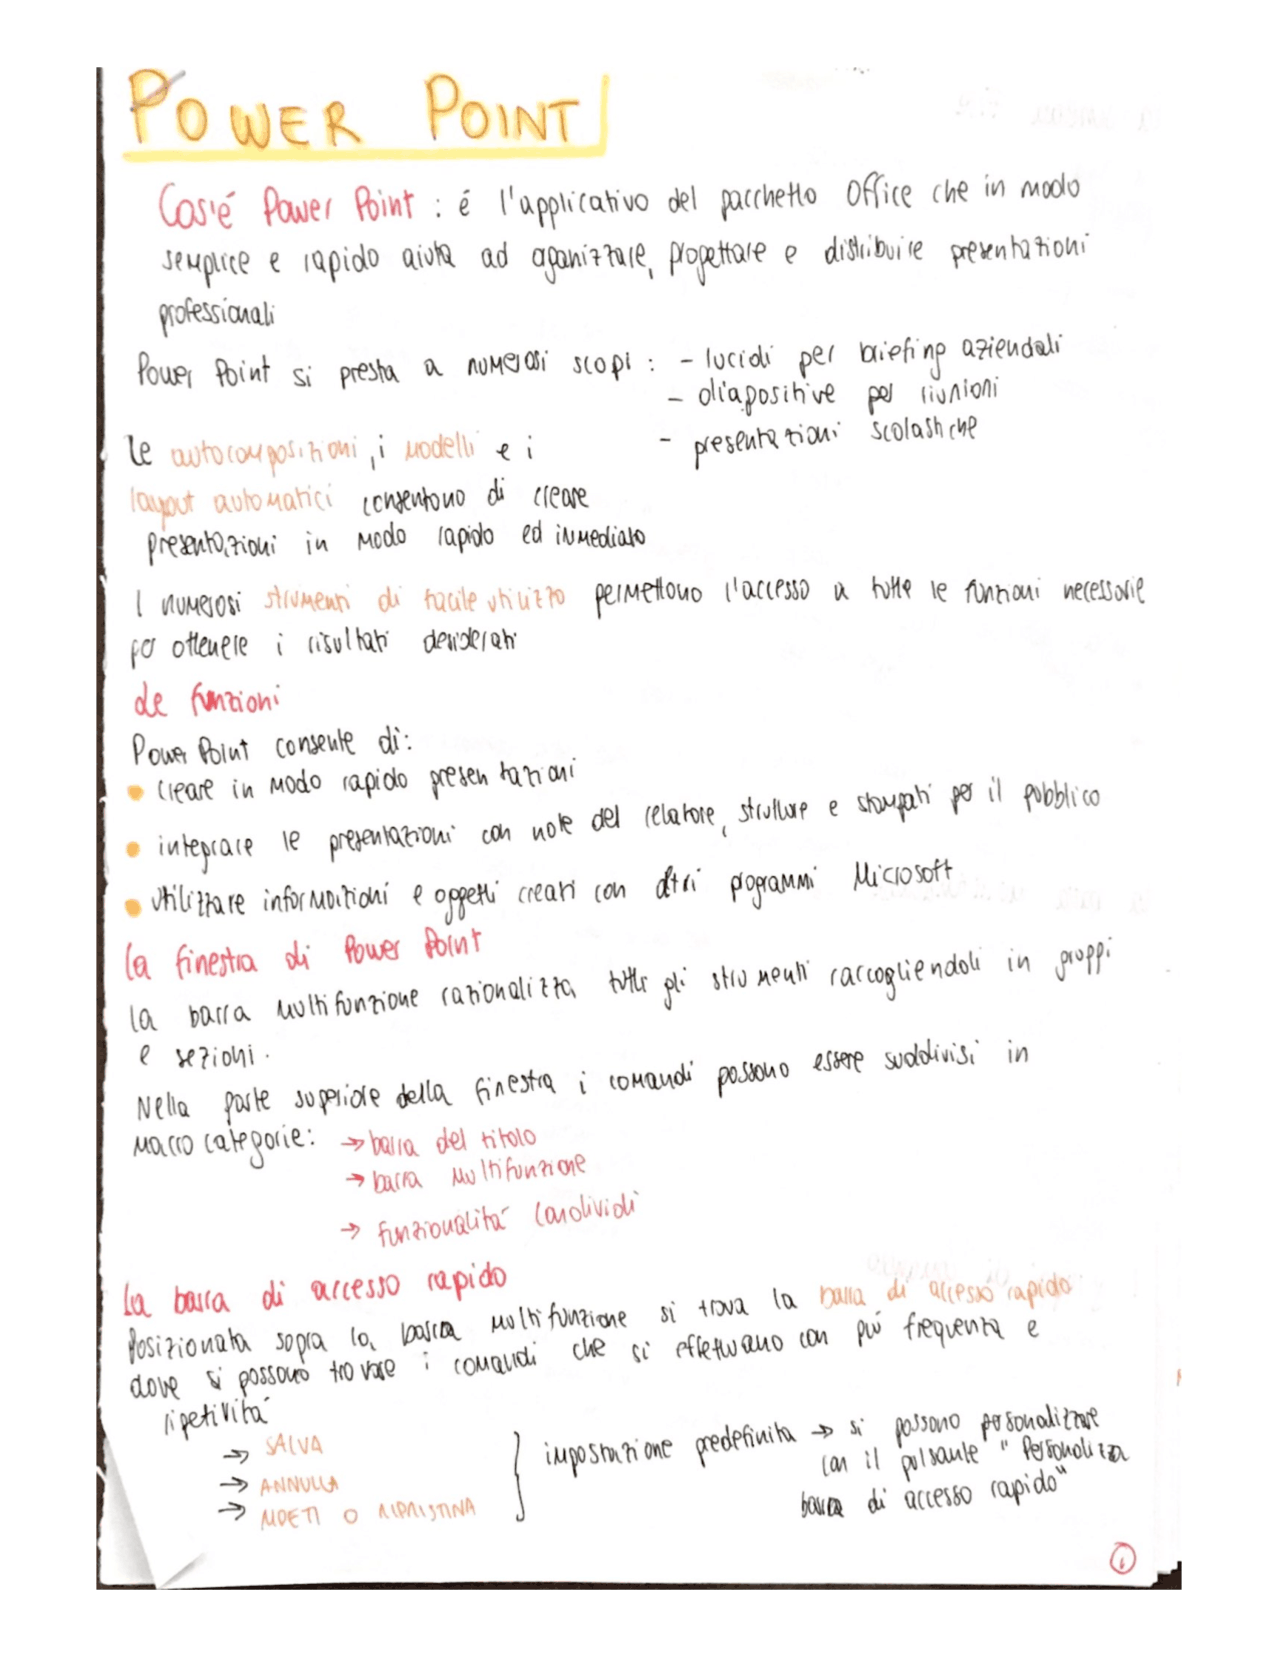 POWER POINT
Cos'é Power Point : é l'applicativo del pacchetto Office che in modo
semplice e rapido aiuta ad organizzare, progettare e distribuire presentazioni
professionali
Power Point si presta a numerosi scopi : - lucidi per briefing aziendali
- diapositive per riunioni
- presentazioni scolastiche
le autocomposizioni, i modelli e i
layout automatici consentono di creare
presentazioni in modo rapido ed immediato
I numerosi strumenti di facile utilizzo permettono l'accesso a tutte le funzioni necessarie
per ottenere i risultati desiderati
Le funzioni
Power Point consente di:
• creare in modo rapido presentazioni
• integrare le presentazioni con note del relatore, strutture e stampati per il pubblico
• utilizzare informazioni e oggetti creati con altri programmi Microsoft
La finestra di Power Point
La barra multifunzione razionalizza tutti gli strumenti raccogliendoli in gruppi
e sezioni.
Nella parte superiore della finestra i comandi possono essere suddivisi in
macro categorie: → barra del titolo
→ barra multifunzione
→ funzionalitá condividi
La barra di accesso rapido
Posizionata sopra la barra multifunzione si trova la barra di accesso rapido
dove si possono trovare i comandi che si effettuano con piú frequenza e
ripetivitá
→ SALVA
→ ANNULLA
→ RIPETI O RIPRISTINA
} impostazione predefinita → si possono personalizzare
con il pulsante "Personalizza
barra di accesso rapido"
1